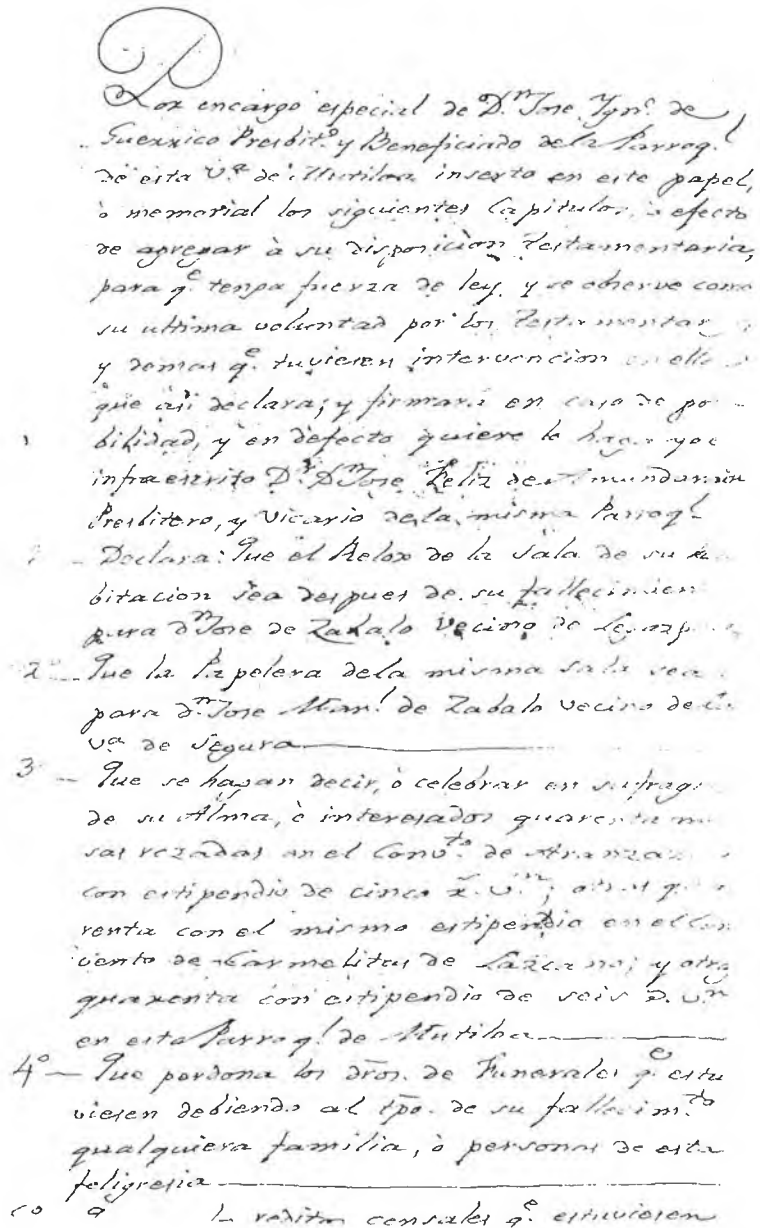 Por encargo especial de D.n Jose Ygn.o de
Guerrico Presbit.o y Beneficiado dela Parroq.l
de esta V.a de Mutiloa inserto en este papel,
ò memorial los siguientes Capitulos, à efecto
de agregar à su disposicion Testamentaria,
para q.e tenga fuerza de ley, y se observe como
su ultima voluntad por los Testamentar
y demas q.e tuviesen intervencion en ello
que asi declara; y firmará en caso de po
bilidad, y en defecto quiere lo haga yo e
infraescrito D.r D.n Jose Feliz de Amundarain
Presbitero, y Vicario dela misma Parroq.l
1 - Declara: Que el Relox de la Sala de su a
bitacion sea despues de su fallecimien
para d.n Jose de Zabalo Vecino de Legazp
2.o - Que la Papelera dela misma sala sea
para d.n Jose Man.l de Zabalo vecino de la
V.a de Segura
3 - Que se hagan decir, ò celebrar en sufrag
de su Alma, è interesados quarenta mi
sas rezadas en el Conv.to de Aranzaz
con estipendio de cinco r. v.n; otras qua
renta con el mismo estipendio en el Con
vento de Carmelitas de Lazcano; y otras
quarenta con estipendio de seis r. v.n
en esta Parroq.l de Mutiloa
4.o - Que perdona los dros. de Funerales q.e estu
viesen debiendo al tpo. de su fallecim.to
qualquiera familia, ò personas de esta
feligresia
reditos censales q.e estuviesen